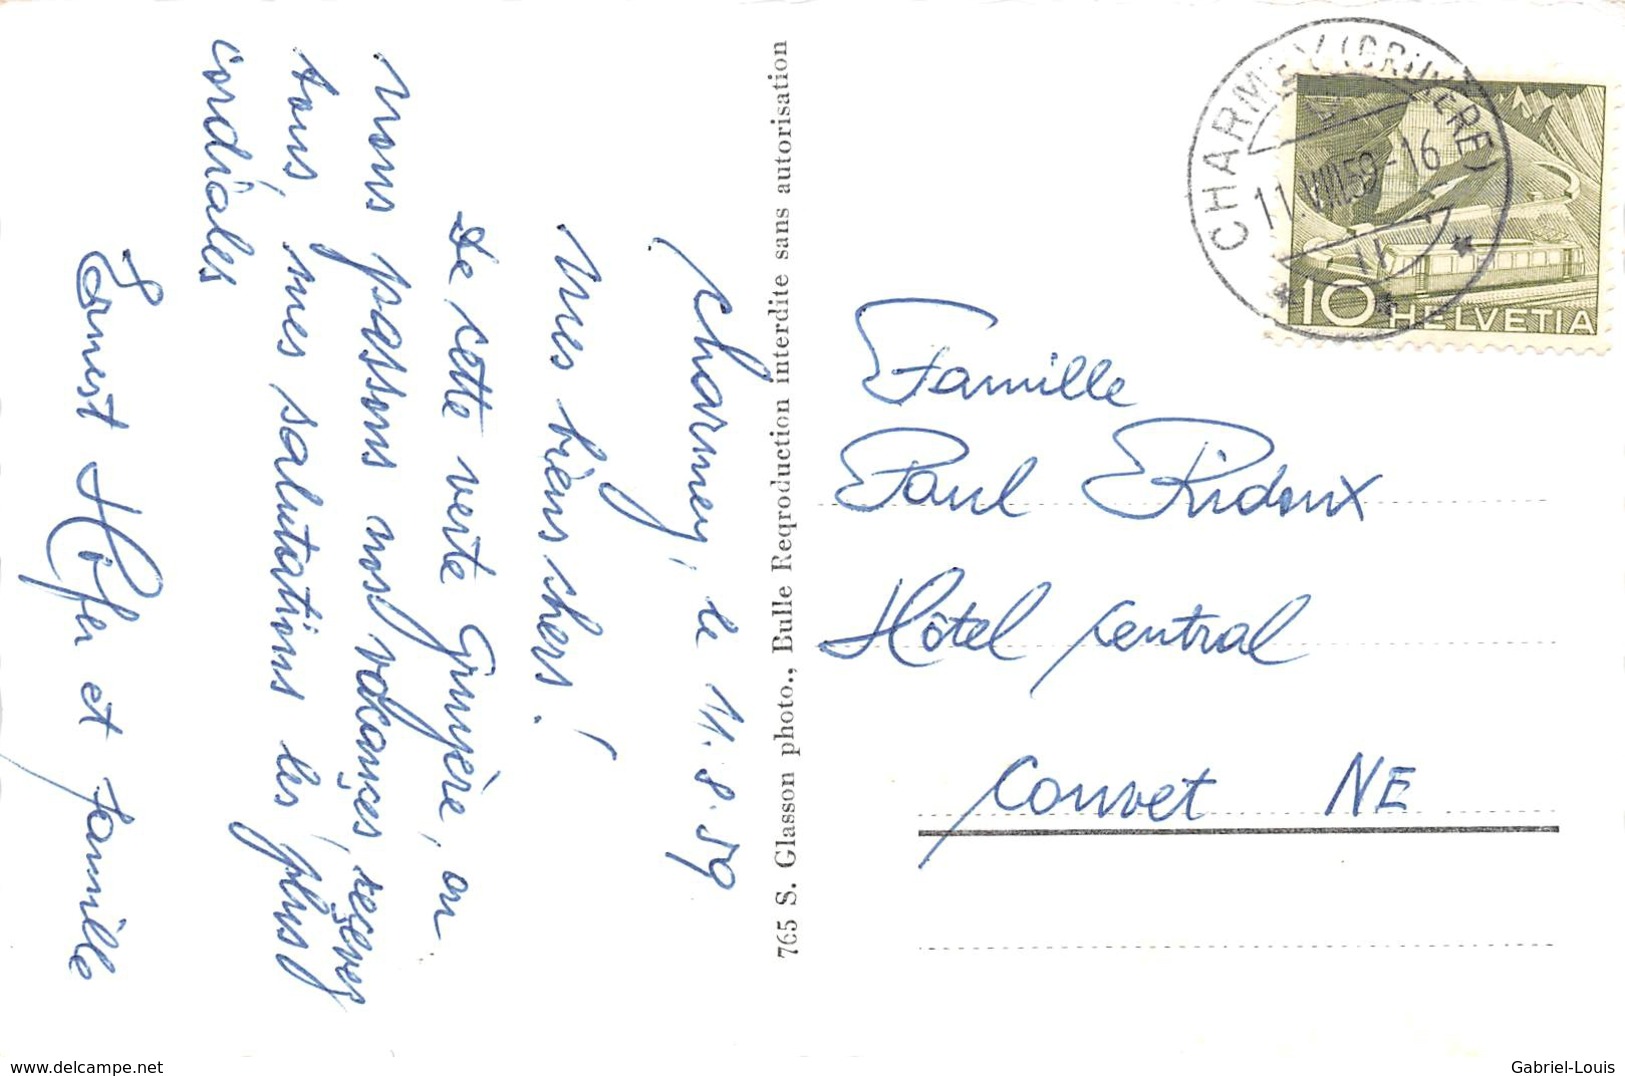 Charmey, le 11.8.59
Mes biens chers!
De cette verte Gruyère, ou
nous passons nos vacançes, reçeves
tous, mes salutations les plus
cordiales
Ernest Hofer et famille
765 S. Glasson photo., Bulle Reqroduction interdite sans autorisation
CHARMEY (GRUYERE)
11.VIII.59-16
10 HELVETIA
Famille
Paul Ridoux
Hôtel Central
Couvet NE
delcampe.net
Gabriel-Louis